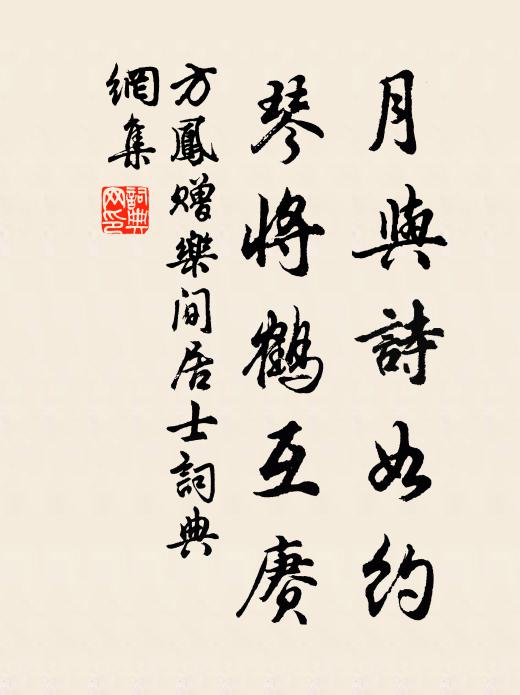 月與詩如約
琴將鶴互賡
方鳳贈樂間居士詞典
網集
詞典網印